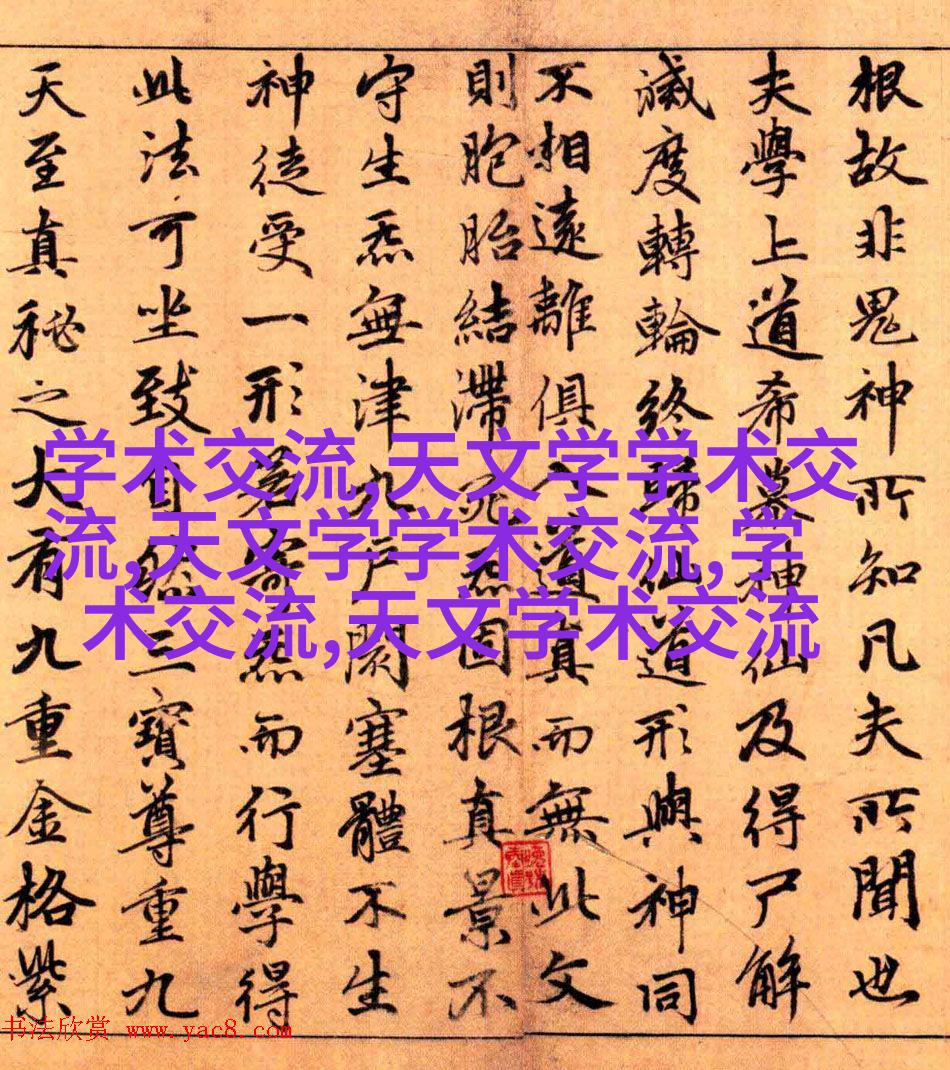 根故非鬼神所知凡夫所聞也
夫學上道希慕神仙及得尸解
滅度轉輪終歸仙道形與神同
不相遠離俱入道真而無此文
則胞胎結滯死炁固根真景不
守生炁無津九戶閼塞體不生
神徒受一形若寄炁而行學得
此法可坐致自然三寶尊重九
天至真秘之大有九重金格紫
学术交流,天文学学术交
流,天文学学术交流,学
术交流,天文学术交流
书法欣赏 www.yac8.com